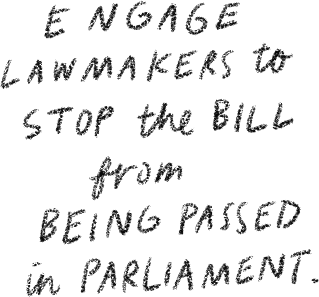 ENGAGE
LAWMAKERS to
STOP the BILL
from
BEING PASSED
in PARLIAMENT.